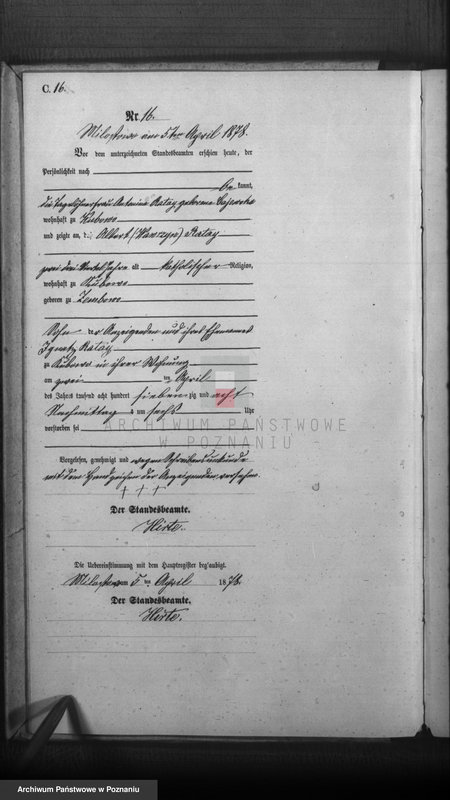 C. 16.
Nr. 16.
Milostowo am 5ten April 1878.
Vor dem unterzeichneten Standesbeamten erschien heute, der
Persönlichkeit nach
be kannt,
die Tagelöhnerfrau Antonina Ratay geborene
wohnhaft zu Kubowo
und zeigte an, daß Albert (Wawrzyn) Ratay
zwei drei Viertel Jahre alt katholischer Religion,
wohnhaft zu Kubowo
geboren zu Zembowo
Sohn der Anzeigenden und ihres Ehemannes
Ignatz Ratay
zu Kubowo in ihrer Wohnung
am zwei ten April
des Jahres tausend acht hundert sieben zig und acht
Nachmittag s um sechs Uhr
verstorben sei
Vorgelesen, genehmigt und wegen Schreibensunkunde
mit dem Handzeichen der Anzeigenden versehen
+ + +
Der Standesbeamte.
Hirte.
Die Uebereinstimmung mit dem Hauptregister beglaubigt.
Milostowo am 5 ten April 1878.
Der Standesbeamte.
Hirte.
ARCHIWUM PAŃSTWOWE
W POZNANIU
Archiwum Państwowe w Poznaniu